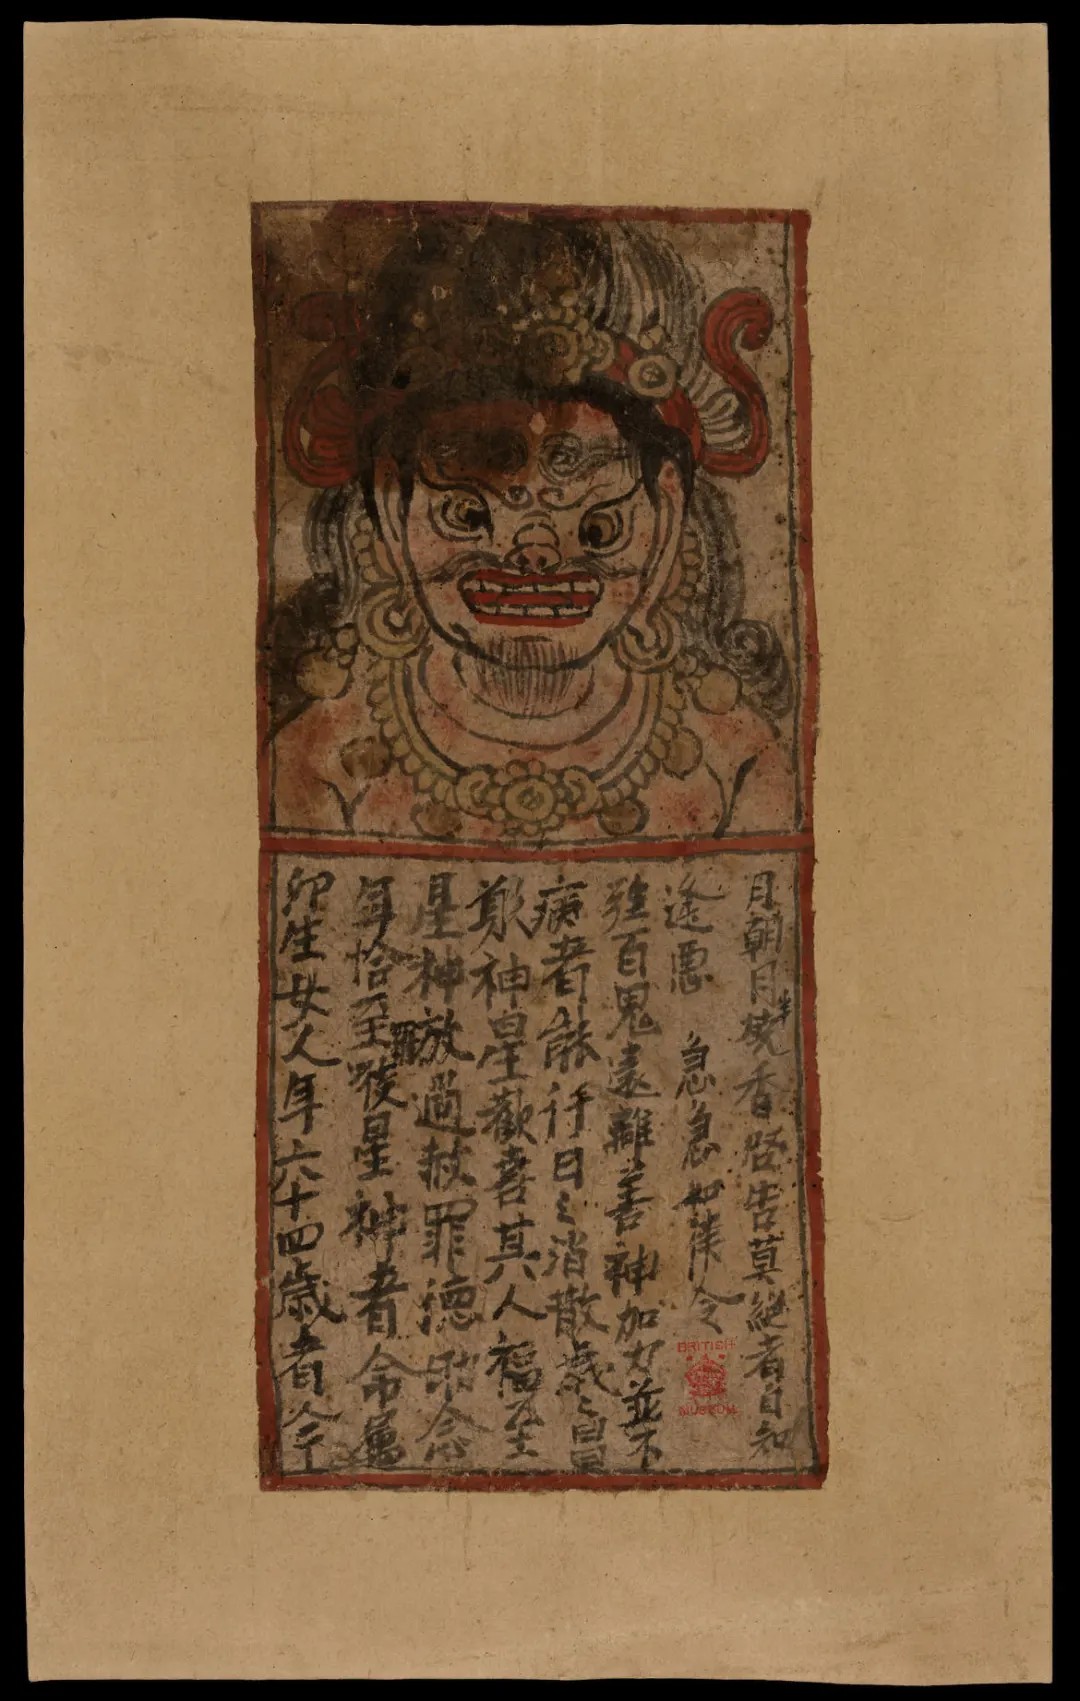 卯生女人年六十四歲者今
年恰至羅睺星神者命屬
星神放過赦罪德
神星歡喜其人福至
病者能行日々消散歲々自
強百鬼遠離善神加力並不
逢惡 急急如律令
月朝月半燒香啓告莫絕者自知
BRITISH
MUSEUM